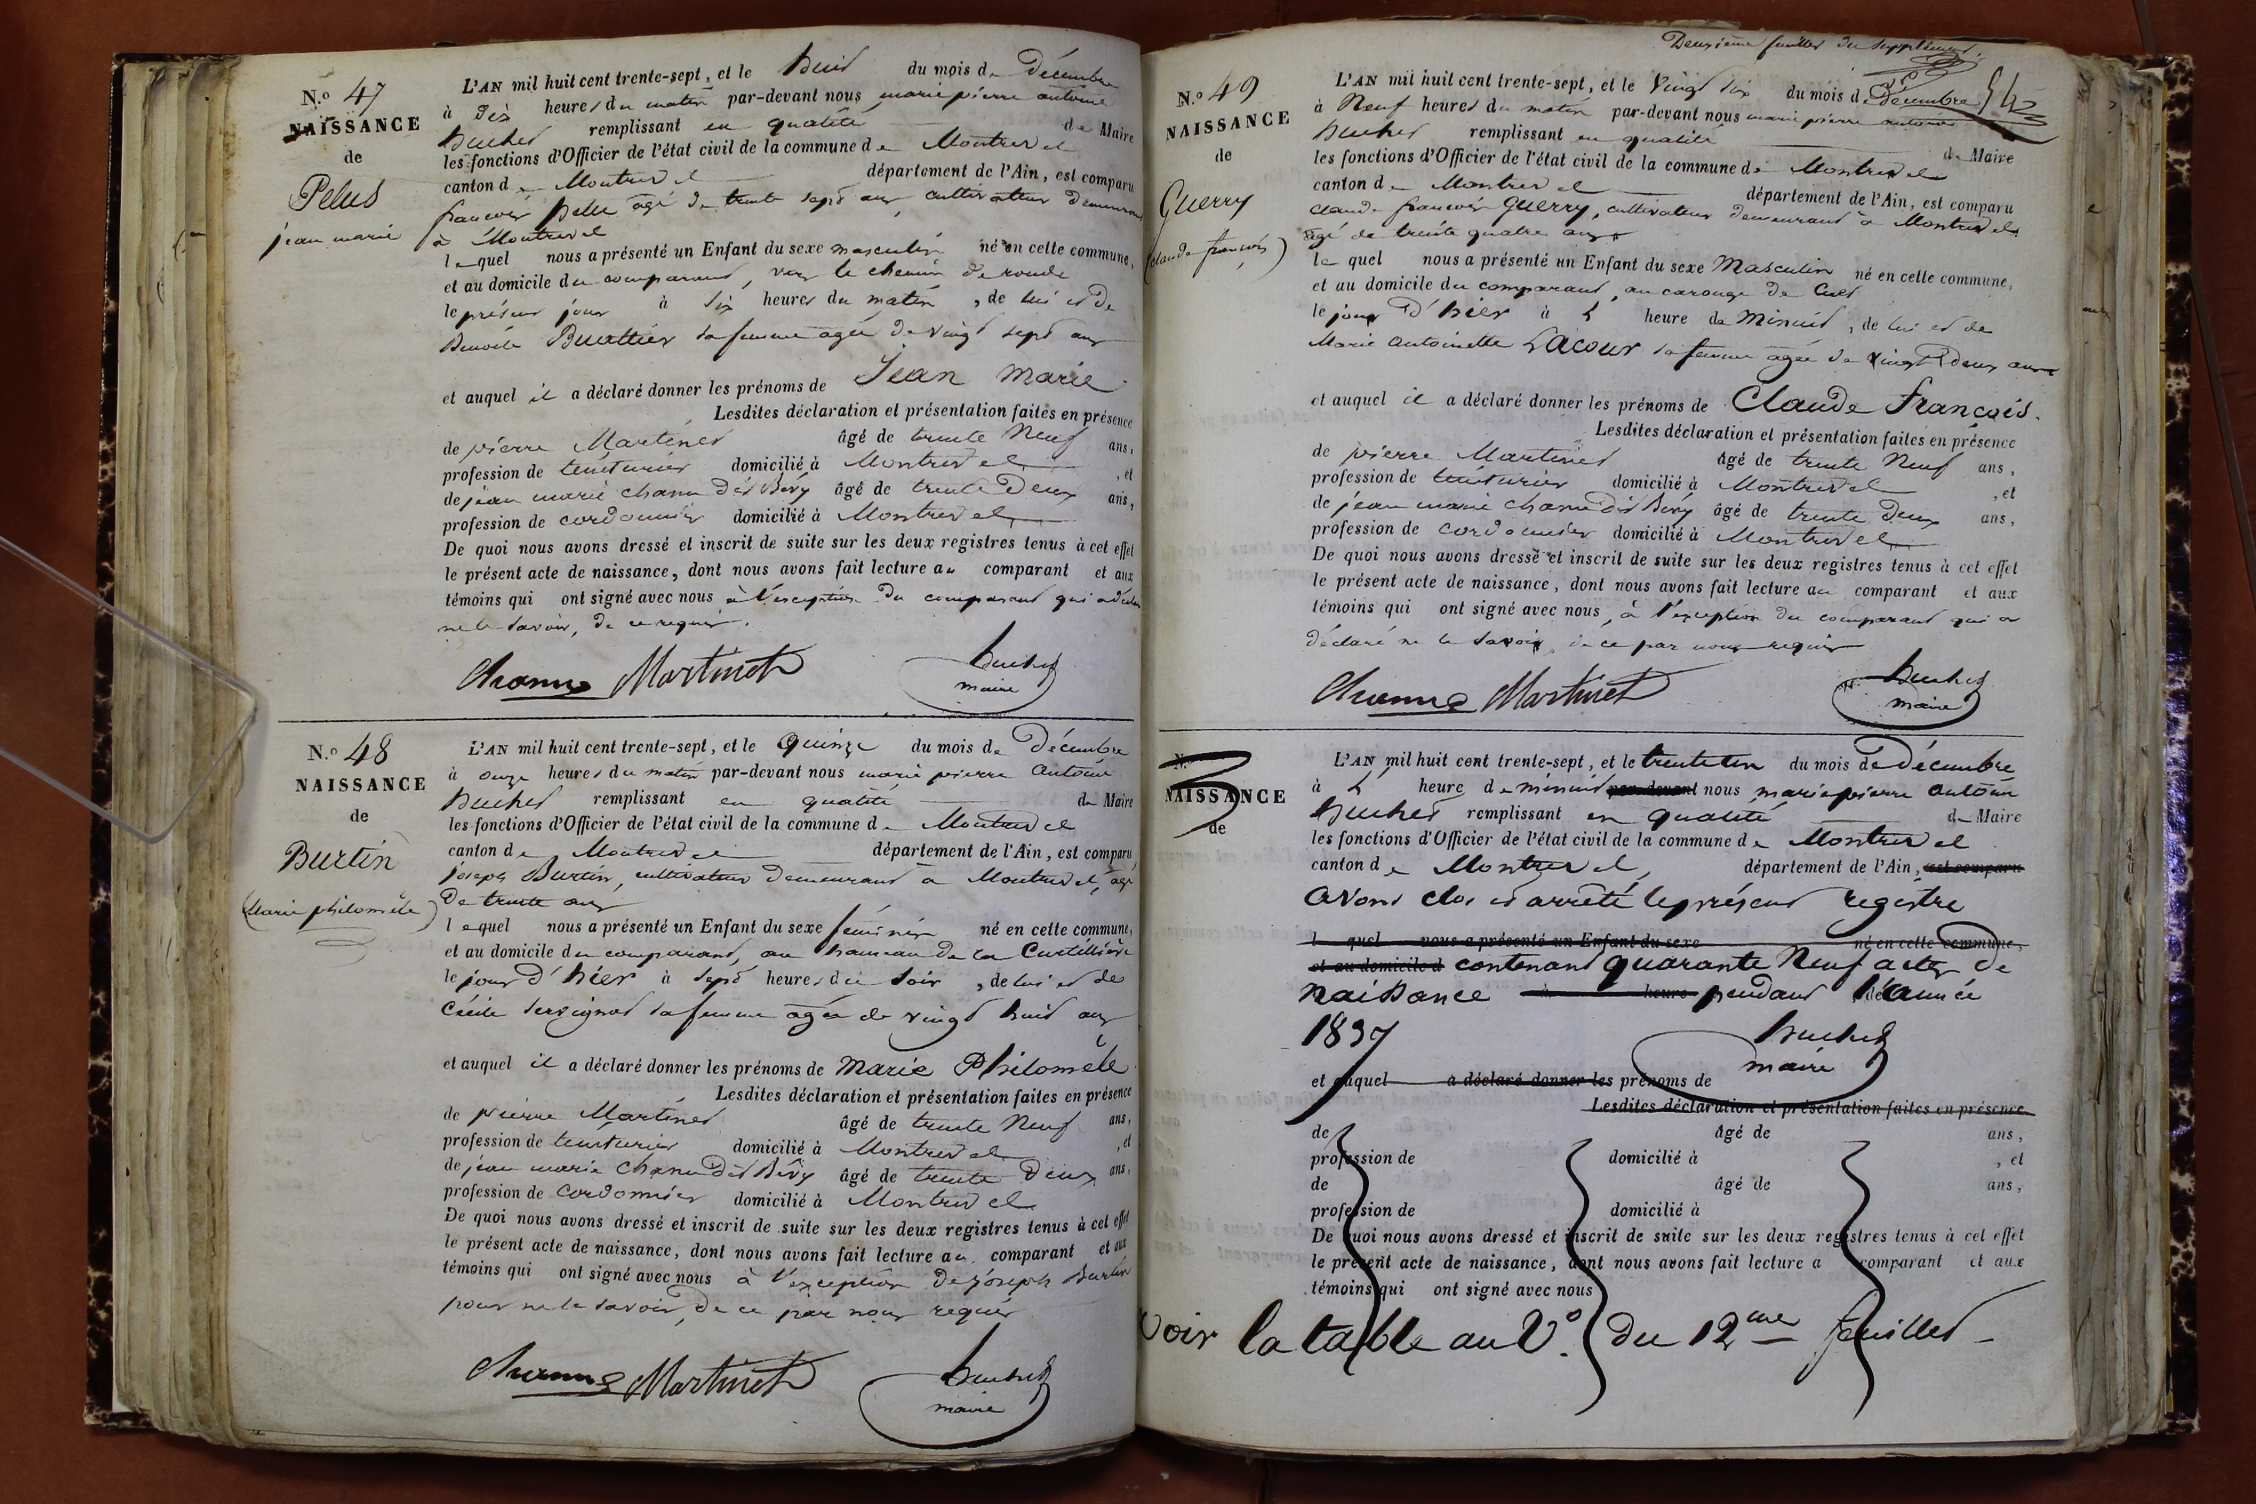 N.º 47
NAISSANCE
de
Pelus
jean marie
L'AN mil huit cent trente-sept, et le huit du mois de Décembre
à Dix heures du matin par-devant nous marie pierre antoine
huchet remplissant en qualité de Maire
les fonctions d'Officier de l'état civil de la commune de Montrevel
canton de Montrevel département de l'Ain, est comparu
françois pelus agé de trente sept ans, cultivateur demeurant
à Montrevel
lequel nous a présenté un Enfant du sexe masculin né en cette commune,
et au domicile du comparant, vers le chemin de ronde
le présent jour à six heures du matin, de lui et de
Benoite Buattier sa femme agée de vingt sept ans
et auquel il a déclaré donner les prénoms de Jean Marie
Lesdites déclaration et présentation faites en présence
de pierre Martinet âgé de trente Neuf ans,
profession de teinturier domicilié à Montrevel, et
de jean marie chanu dit Bévy âgé de trente Deux ans,
profession de cordonnier domicilié à Montrevel
De quoi nous avons dressé et inscrit de suite sur les deux registres tenus à cet effet
le présent acte de naissance, dont nous avons fait lecture au comparant et aux
témoins qui ont signé avec nous à l'exception du comparant qui a déclaré
ne le savoir, de ce requis.
Martinet huchet
maire
N.º 48
NAISSANCE
de
Burtin
(Marie philomèle)
L'AN mil huit cent trente-sept, et le quinze du mois de Décembre
à onze heures du matin par-devant nous marie pierre Antoine
huchet remplissant en qualité de Maire
les fonctions d'Officier de l'état civil de la commune de Montrevel
canton de Montrevel département de l'Ain, est comparu
joseph Burtin, cultivateur demeurant à Montrevel, agé
de trente ans
lequel nous a présenté un Enfant du sexe féminin né en cette commune,
et au domicile du comparant, au hameau de la Cutillière
le jour d'hier à sept heures du soir, de lui et de
Cécile servignat sa femme agée de vingt huit ans
et auquel il a déclaré donner les prénoms de Marie Philomèle
Lesdites déclaration et présentation faites en présence
de pierre Martinet âgé de trente Neuf ans,
profession de teinturier domicilié à Montrevel, et
de jean marie chanu dit Bévy âgé de trente Deux ans,
profession de cordonnier domicilié à Montrevel
De quoi nous avons dressé et inscrit de suite sur les deux registres tenus à cet effet
le présent acte de naissance, dont nous avons fait lecture au comparant et aux
témoins qui ont signé avec nous à l'exception de joseph Burtin
pour ne le savoir, de ce par nous requis
Martinet huchet
maire
Deuxième feuillet du supplément.
N.º 49
NAISSANCE
de
Guerry
(claude françois)
L'AN mil huit cent trente-sept, et le Vingt six du mois de Décembre
à Neuf heures du matin par-devant nous marie pierre antoine
huchet remplissant en qualité de Maire
les fonctions d'Officier de l'état civil de la commune de Montrevel
canton de Montrevel département de l'Ain, est comparu
claude françois Guerry, cultivateur demeurant à Montrevel,
agé de trente quatre ans
le quel nous a présenté un Enfant du sexe Masculin né en cette commune,
et au domicile du comparant, au carouge de Cuet
le jour d'hier à heure de Minuit, de lui et de
Marie Antoinette Lacour sa femme agée de vingt deux ans
et auquel il a déclaré donner les prénoms de Claude François.
Lesdites déclaration et présentation faites en présence
de pierre Martinet âgé de trente Neuf ans,
profession de teinturier domicilié à Montrevel, et
de jean marie chanu dit Bévy âgé de trente Deux ans,
profession de cordonnier domicilié à Montrevel
De quoi nous avons dressé et inscrit de suite sur les deux registres tenus à cet effet
le présent acte de naissance, dont nous avons fait lecture au comparant et aux
témoins qui ont signé avec nous, à l'exception du comparant qui a
déclaré ne le savoir, de ce par nous requis
Martinet huchet
maire
N.º
NAISSANCE
de
L'AN mil huit cent trente-sept, et le trente un du mois de Décembre
à heure de minuit par-devant nous marie pierre antoine
huchet remplissant en qualité de Maire
les fonctions d'Officier de l'état civil de la commune de Montrevel
canton de Montrevel, département de l'Ain, est comparu
avons clos et arrêté le présent registre
l quel nous a présenté un Enfant du sexe né en cette commune,
et au domicile d contenant quarante Neuf actes de
naissance à heure pendant , de l'année
1837 huchet
maire
et auquel a déclaré donner les prénoms de
Lesdites déclaration et présentation faites en présence
de âgé de ans,
profession de domicilié à , et
de âgé de ans,
profession de domicilié à
De quoi nous avons dressé et inscrit de suite sur les deux registres tenus à cet effet
le présent acte de naissance, dont nous avons fait lecture a comparant et aux
témoins qui ont signé avec nous
Voir la table au Vº. du 12me feuillet